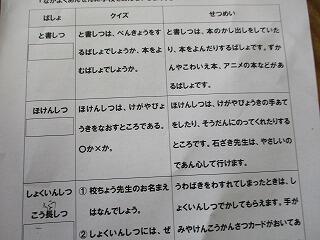 ばしょ
クイズ
せつめい
と書しつ
と書しつは、べんきょうをす
るばしょでしょうか、本をよ
むばしょでしょうか。
と書しつは、本のかし出しをしていた
り、本をよんだりするばしょです。ずか
んやこわいえ本、アニメの本などがあ
るばしょです。
ほけんしつ
ほけんしつは、けがやびょ
うきをなおすところである。
〇か×か。
ほけんしつは、けがやびょうきの手あて
をしたり、そうだんにのってくれたりする
ところです。石ざき先生は、やさしいの
であん心して行けます。
しょくいんしつ
こう長しつ
① 校ちょう先生のお名まえ
はなんでしょう。
② しょくいんしつには、ぜ
うわばきをわすれてしまったときは、し
ょくいんしつでかしてもらえます。手が
みやけんこうかんさつカードがおいてあ